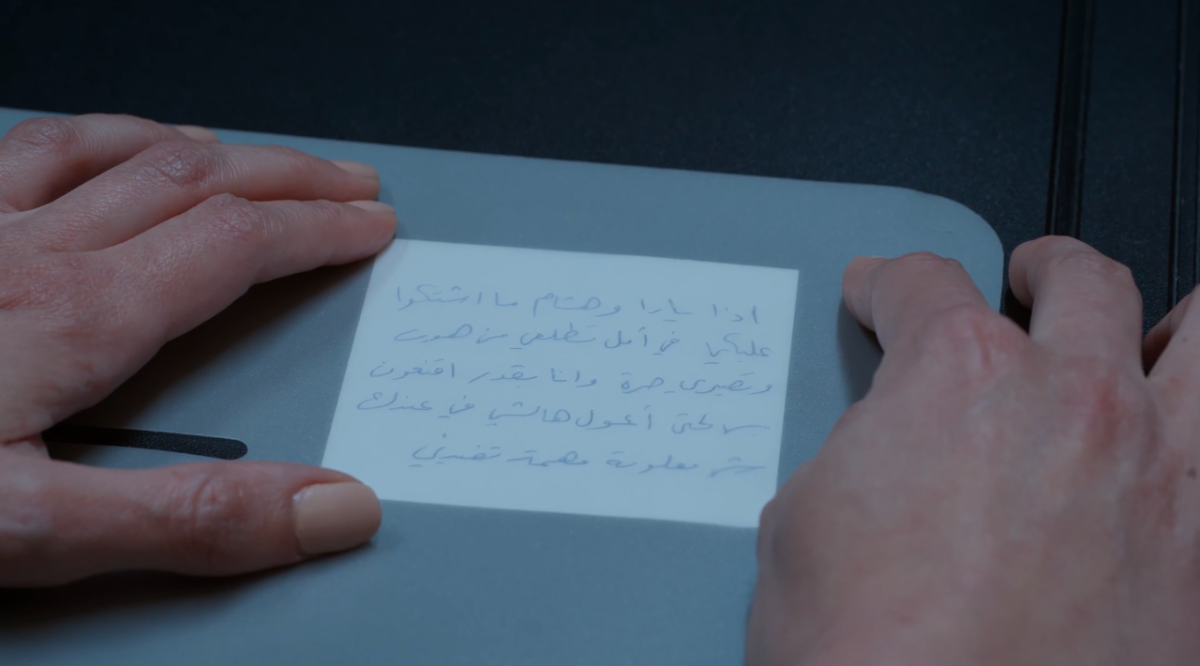 اذا يارا وهشام ما اشتكوا
عليكي في أمل تطلعي من هون
وتصيري حرة وانا بقدر اقنعون
بس لحتى أعمل هالشي في عندك
شي معلومة مهمة تفيديني